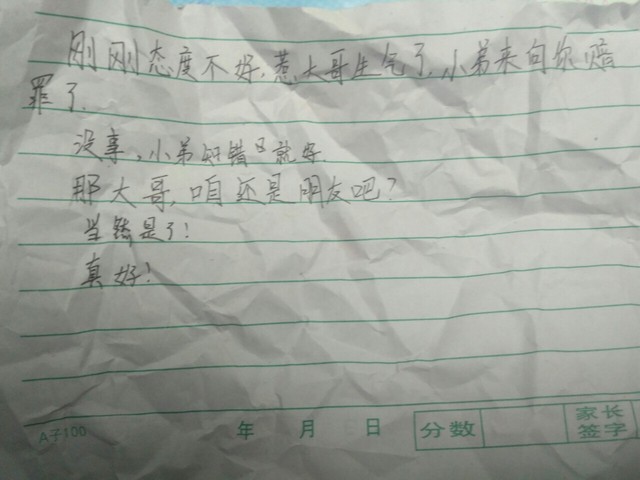 刚刚态度不好,惹大哥生气了,小弟来向你赔
罪了.
没事,小弟知错就好.
那大哥,咱还是朋友吧?
当然是了!
真好!
A子100 年 月 日 分数 家长
签字